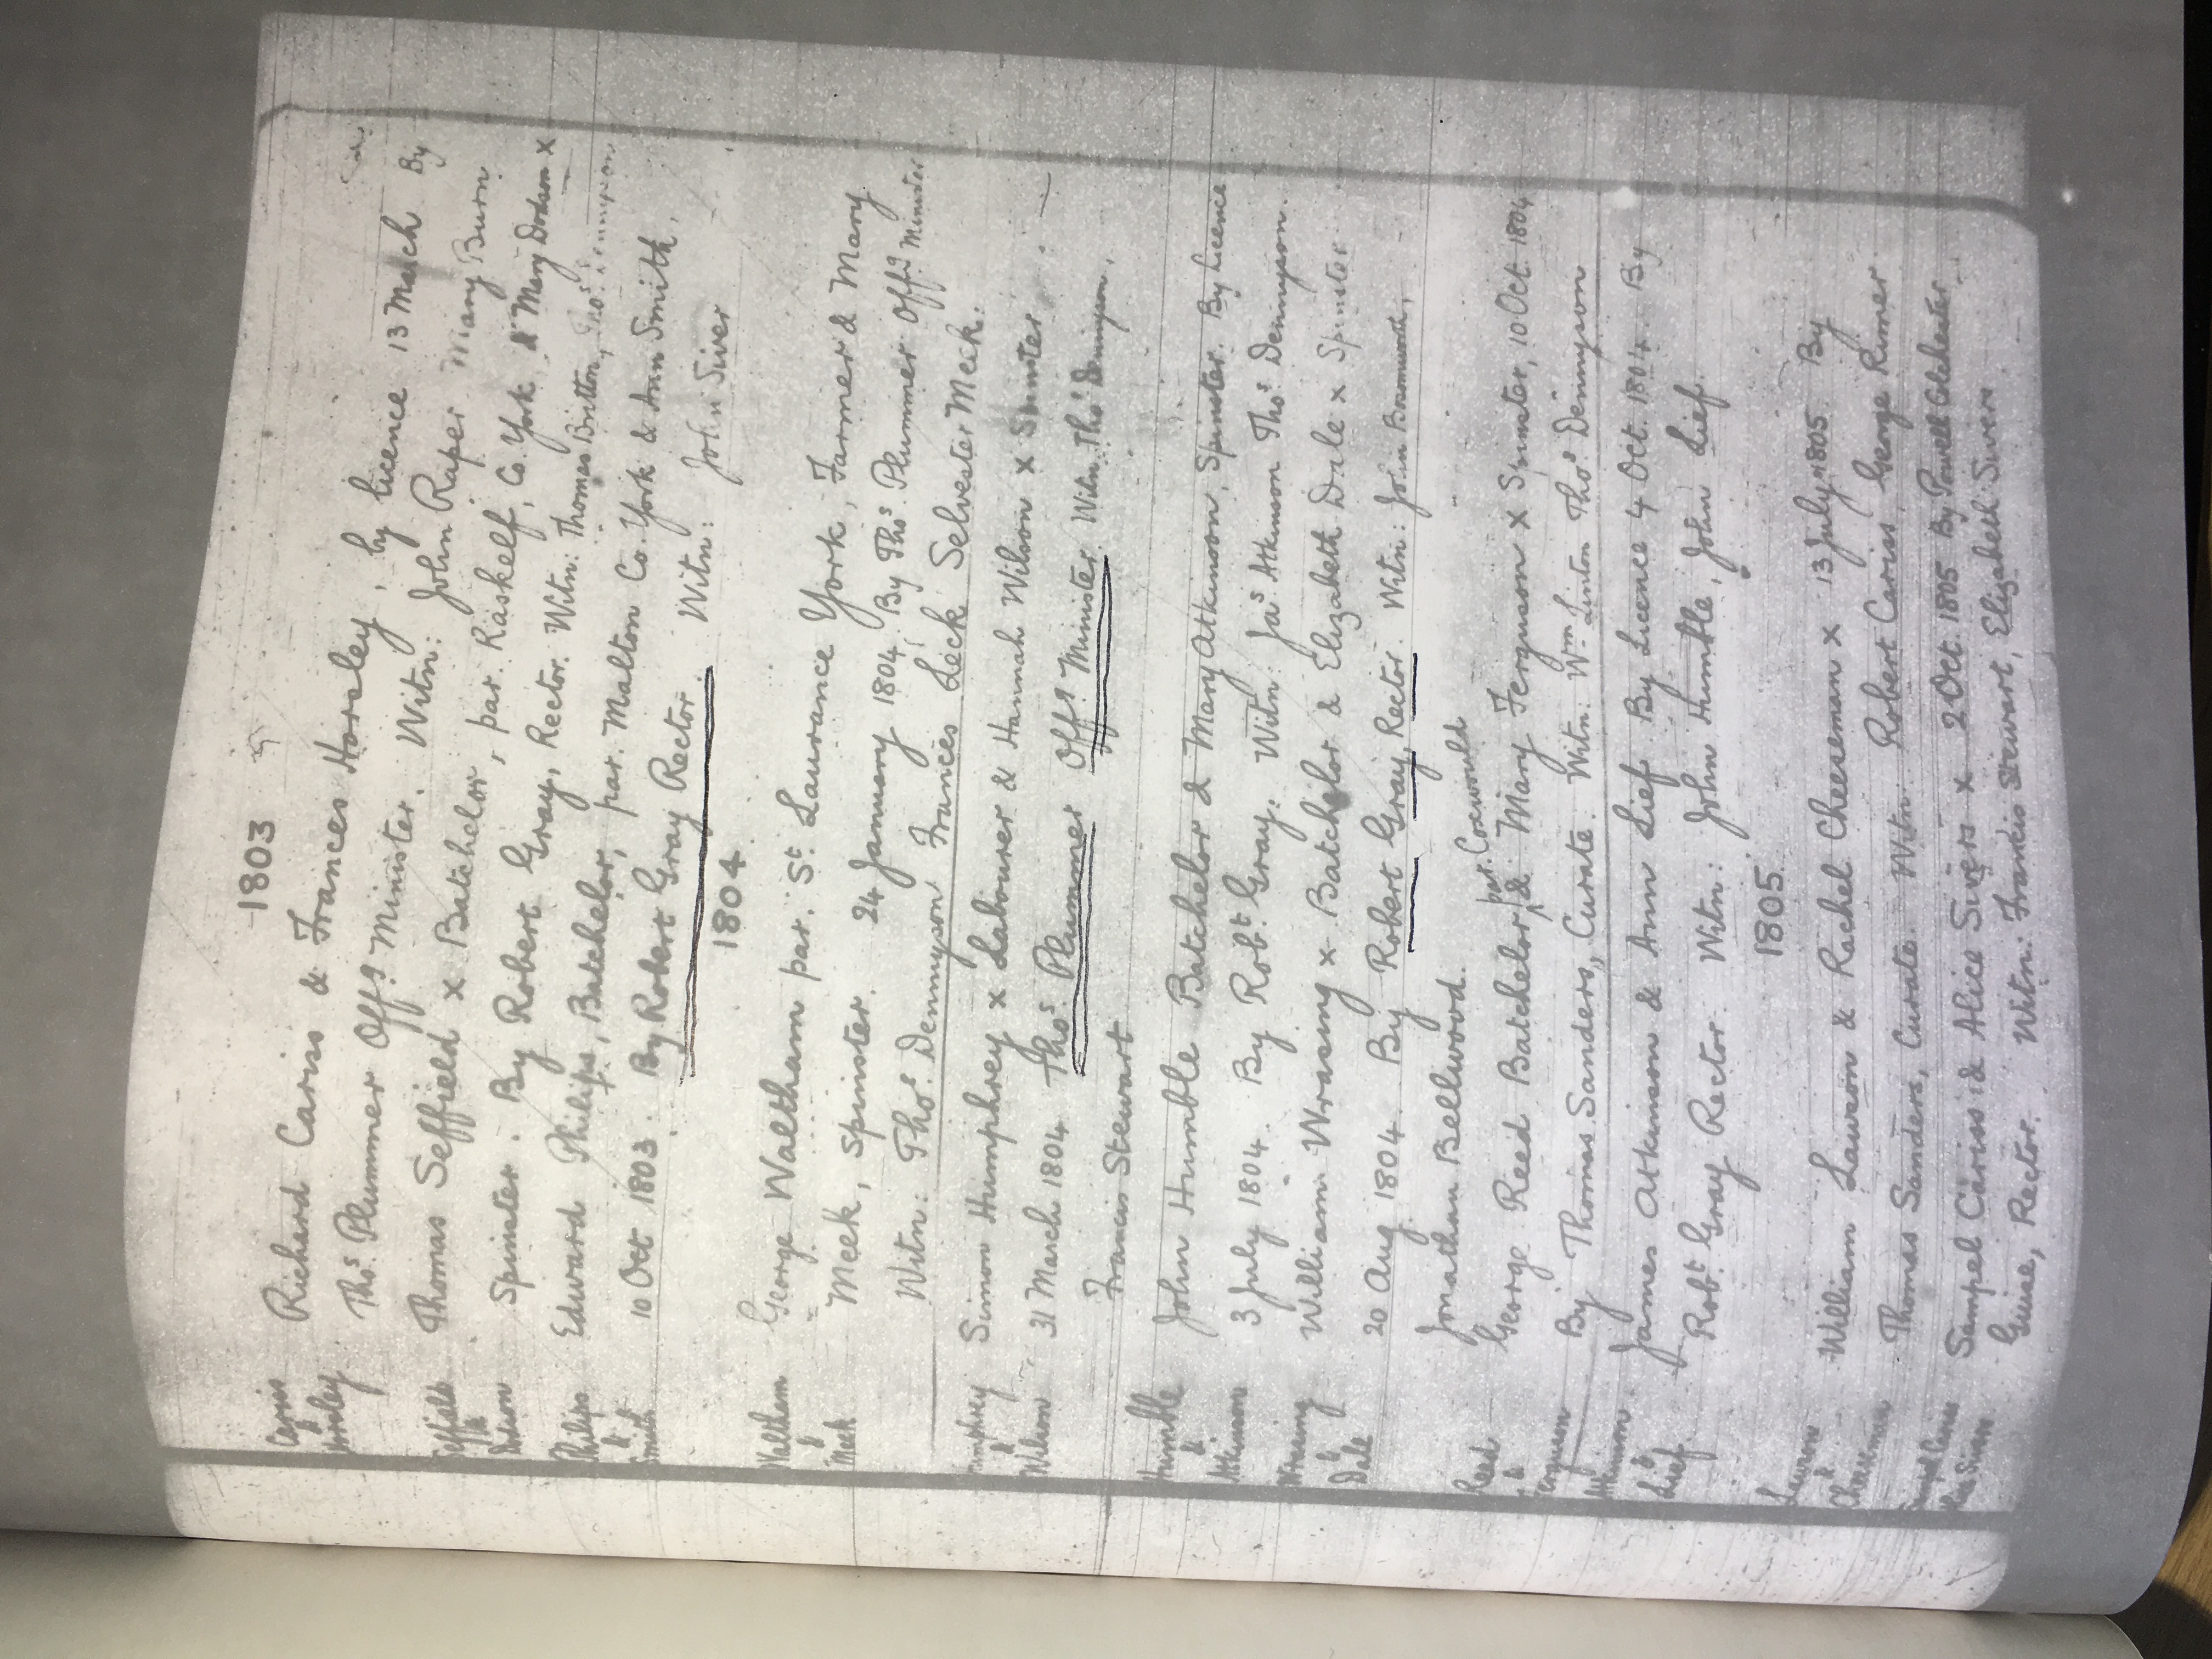 1803
Cariss & Horsley
Richard Cariss & Frances Horsley, by licence 13 March By
Thos. Plummer Offg. Minister. Witn: John Raper Mary Burn.
Seffield & Dodson
Thomas Seffield x Batchelor, par. Raskelf, Co. York & Mary Dodson x
Spinster. By Robert Gray, Rector. Witn: Thomas Britton, Thos. Dennyson
Philips & Smith
Edward Philips, Batchelor, par. Malton Co. York & Ann Smith,
10 Oct 1803. By Robert Gray Rector. Witn: John Siver
1804
Waltham & Meek
George Waltham par. St. Laurance York, Farmer & Mary
Meek, Spinster. 24 January 1804 By Thos. Plummer Offg. Minister
Witn: Thos. Dennyson Frances Leck Selvester Meek.
Humphrey & Wilson
Simon Humphrey x Labourer & Hannah Wilson x Spinster
31 March 1804 Thos. Plummer Offg. Minister Witn. Thos. Dennyson,
Francis Stewart
Humble & Atkinson
John Humble Batchelor & Mary Atkinson, Spinster. By Licence
3 July 1804. By Robt. Gray. Witn: Jas. Atkinson Thos. Dennyson.
Wrasing & Dale
William Wrasing x Batchelor & Elizabeth Dale x Spinster
20 Aug 1804. By Robert Gray, Rector. Witn: John
Jonathan Bellwood.
par. Coxwould
Reed & Ferguson
George Reed Batchelor, & Mary Ferguson x Spinster, 10 Oct 1804
By Thomas Sanders, Curate. Witn: Wm. Linton Thos. Dennyson
Atkinson & Lief
James Atkinson & Ann Lief By Licence 4 Oct. 1804. By
Robt. Gray Rector. Witn: John Humble, John Lief.
1805
Lawson & Cheeseman
William Lawson & Rachel Cheeseman x 13 July 1805 By
Thomas Sanders, Curate. Witn: Robert Cariss George Rimer
Sampel Cariss Alice Sivers
Sampel Cariss & Alice Sivers x 2 Oct. 1805 By Powell Colchester
Guise, Rector. Witn: Francis Stewart, Elizabeth Sivers